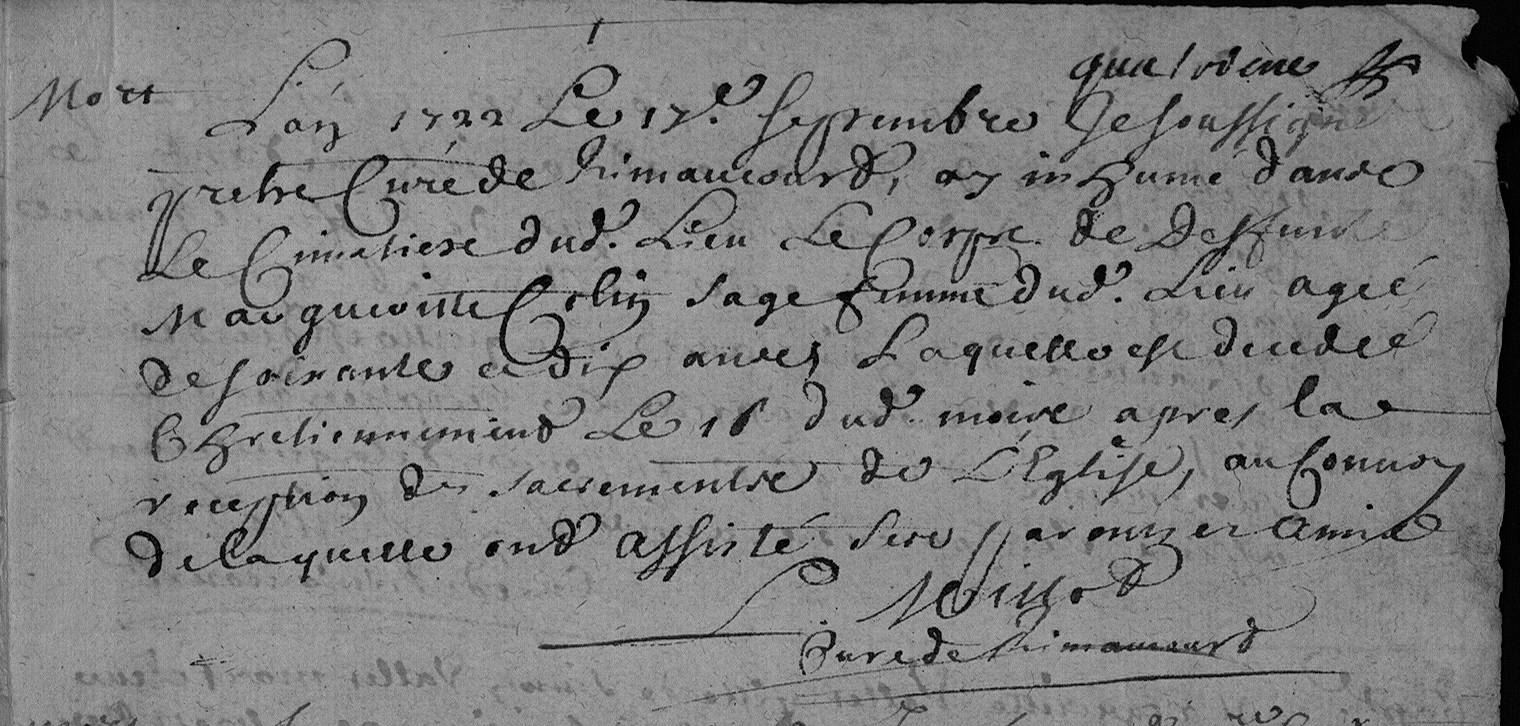 quatrieme
Mort L'an 1722 Le 17e. Septembre Je soussigné
pretre Curé de Rimaucourd, ay inhumé dans
Le Cimetiere dud. Lieu Le Corps de Deffunte
Margueritte sage femme dud. Lieu agée
de soixante et dix anné Laquelle est decedeé
Chretiennement Le 16 dud. mois apres la
reception des sacrements de L'Eglise, au Convoy
de laquelle ond assisté ses parens et amis
Curé de Rimaucourd